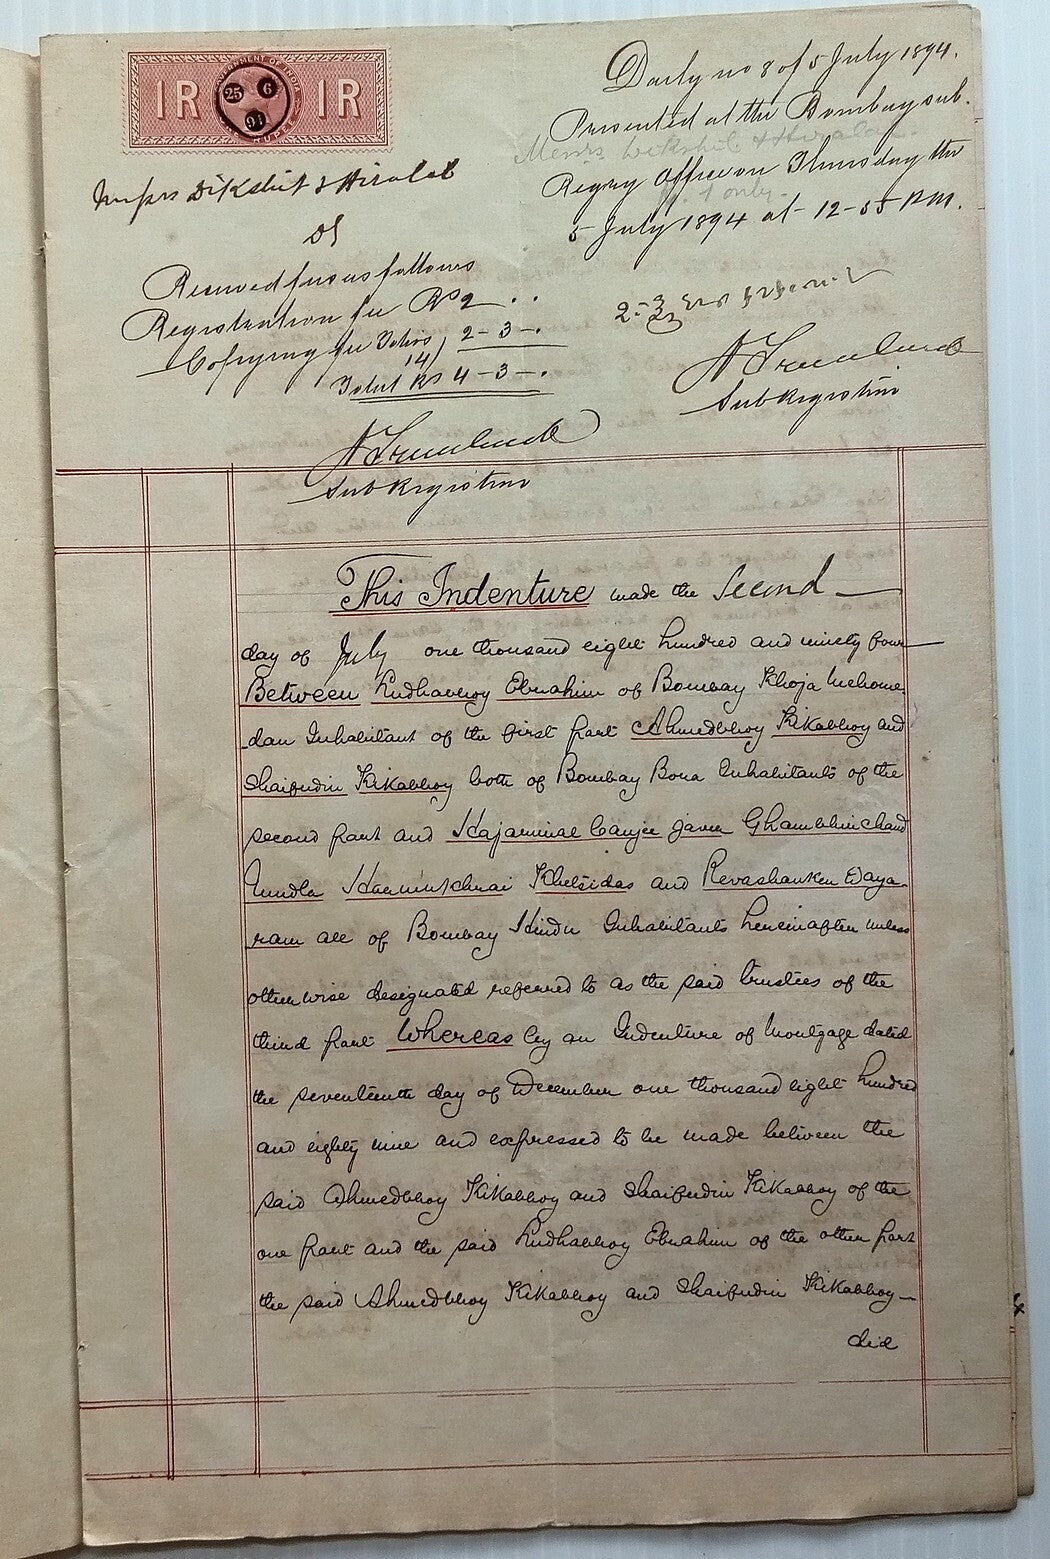 1R GOVERNMENT OF INDIA 1R
25 6
94
RUPEE
Messrs Dikshit & Hiralal
Daily no 8 of 5 July 1894.
Presented at the Bombay sub.
Messrs Dikshit & Hiralal
Regry Office on Thursday the
P. 1 only.
5 July 1894 at 12-55 P.M.
Received fees as follows
Registration fee Rs 2 . .
Copying fee folios 2 - 3 - .
14)
Total Rs 4 - 3 - .
Sub Registrar
Sub Registrar
This Indenture made the Second
day of July one thousand eight hundred and ninety four
Between Ludhabhoy Ebrahim of Bombay Khoja Mahome-
dan Inhabitant of the first part Ahmedbhoy Kikabhoy and
Shaifudin Kikabhoy both of Bombay Bora Inhabitants of the
second part and Hajarimal Canjee
Khetsidas and Revashanker Daya-
ram all of Bombay Hindu Inhabitants hereinafter unless
otherwise designated referred to as the said trustees of the
third part Whereas by an Indenture of Mortgage dated
the seventeenth day of December one thousand eight hundred
and eighty nine and expressed to be made between the
said Ahmedbhoy Kikabhoy and Shaifudin Kikabhoy of the
one part and the said Ludhabhoy Ebrahim of the other part
the said Ahmedbhoy Kikabhoy and Shaifudin Kikabhoy
did